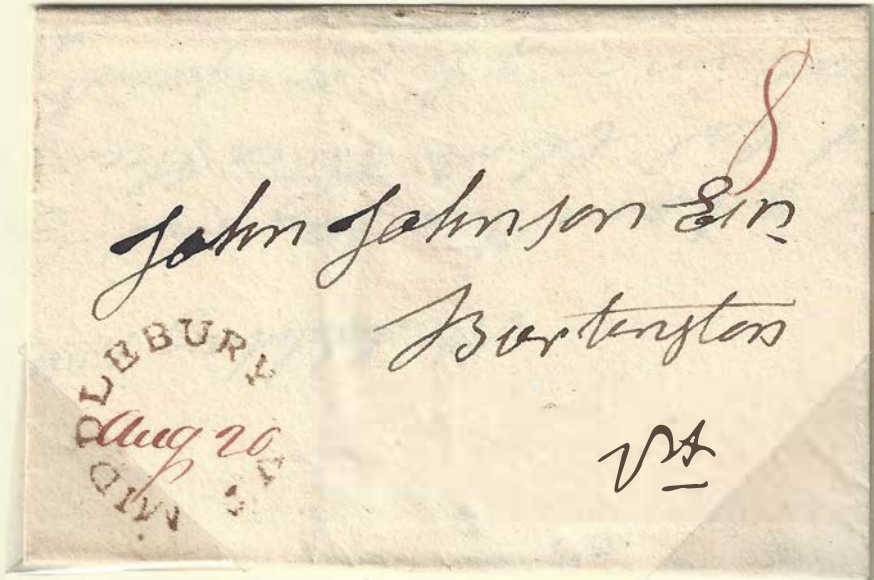 8
John Johnson Esqr
Burlington
Vt
MIDDLEBURY VT
Aug 20